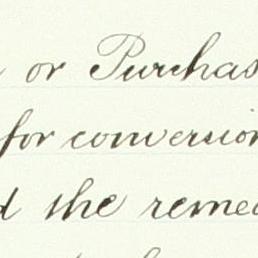 or Purchas
for conversion
the remed